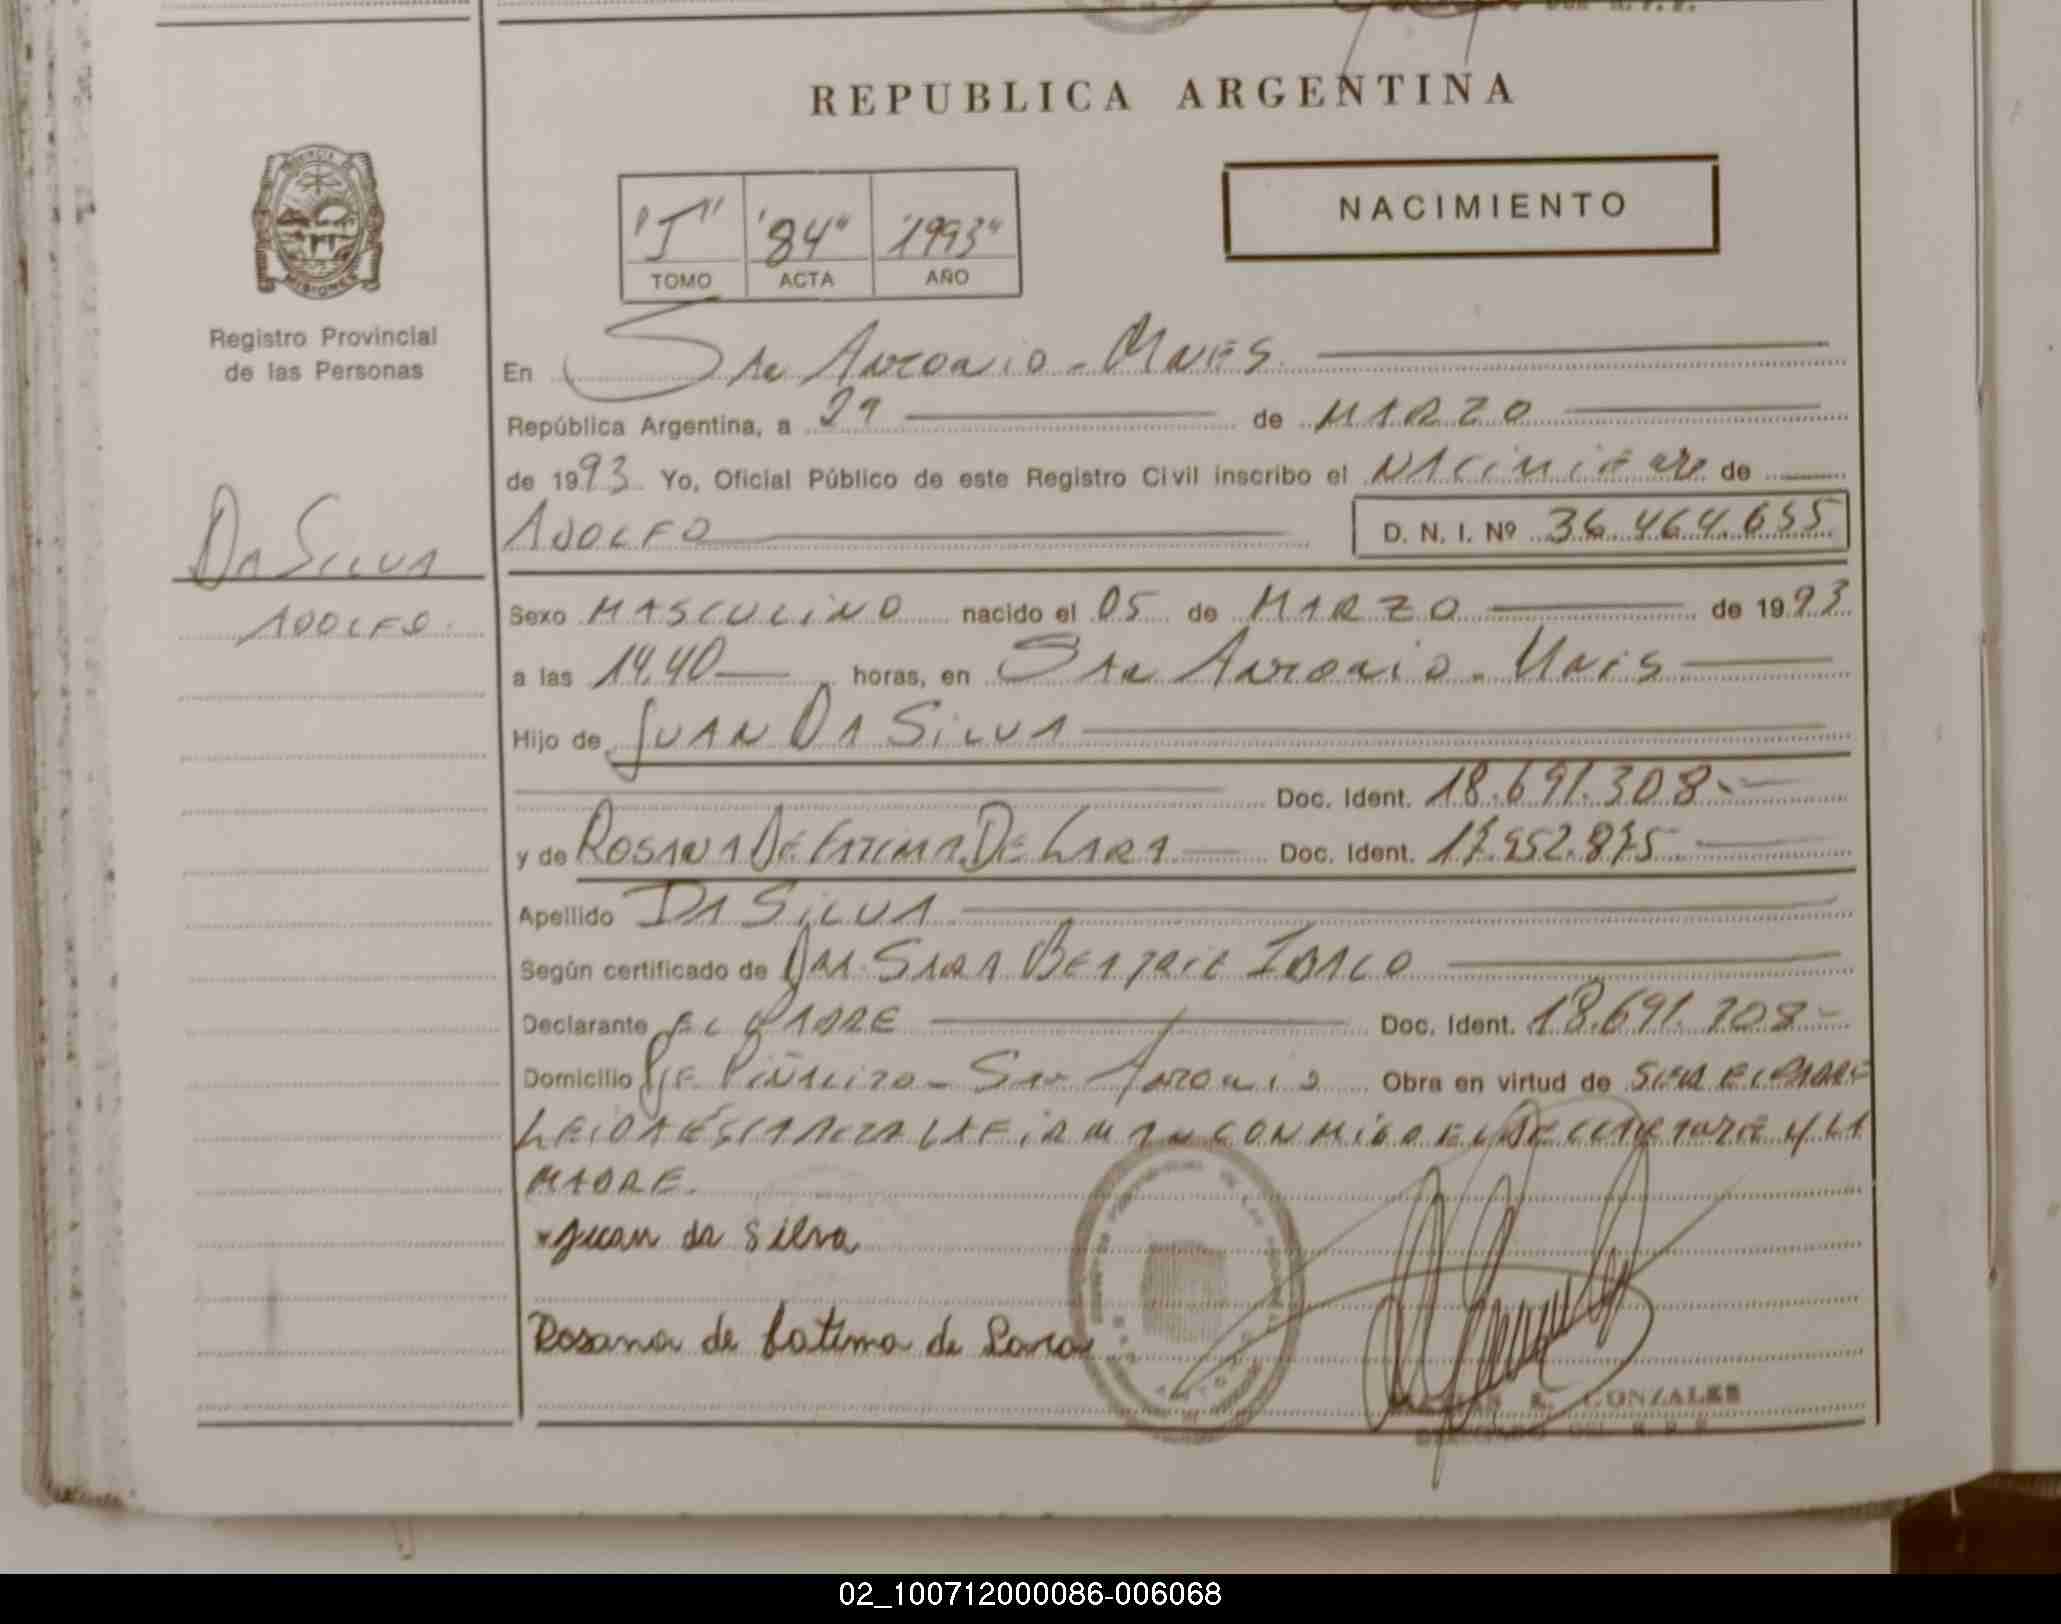 REPUBLICA ARGENTINA
NACIMIENTO
"I" "84" "1993"
TOMO ACTA AÑO
MISIONES
Registro Provincial
de las Personas
En San Antonio - Mnes.
República Argentina, a 29 de MARZO
de 1993 Yo, Oficial Público de este Registro Civil inscribo el NACIMIENTO de
ADOLFO D. N. I. Nº 36.464.655
DA SILVA
ADOLFO.
Sexo MASCULINO nacido el 05 de MARZO de 1993
a las 14.40 horas, en San Antonio - Mnes
Hijo de JUAN DA SILVA
Doc. Ident. 18.691.308.-
y de ROSANA DE FATIMA DE LARA Doc. Ident. 17.952.875
Apellido DA SILVA
Según certificado de DRA. SARA BEATRIZ
Declarante EL PADRE Doc. Ident. 18.691.308-
Domicilio PJE PIÑALITO - San Antonio Obra en virtud de SER EL PADRE
LEIDA ESTA ACTA LA FIRMAN CONMIGO EL DECLARANTE Y LA
MADRE.
Juan da Silva
Rosana de Fatima de Lara
E. GONZALES
DELEGADO DEL R. P. P.
02_100712000086-006068